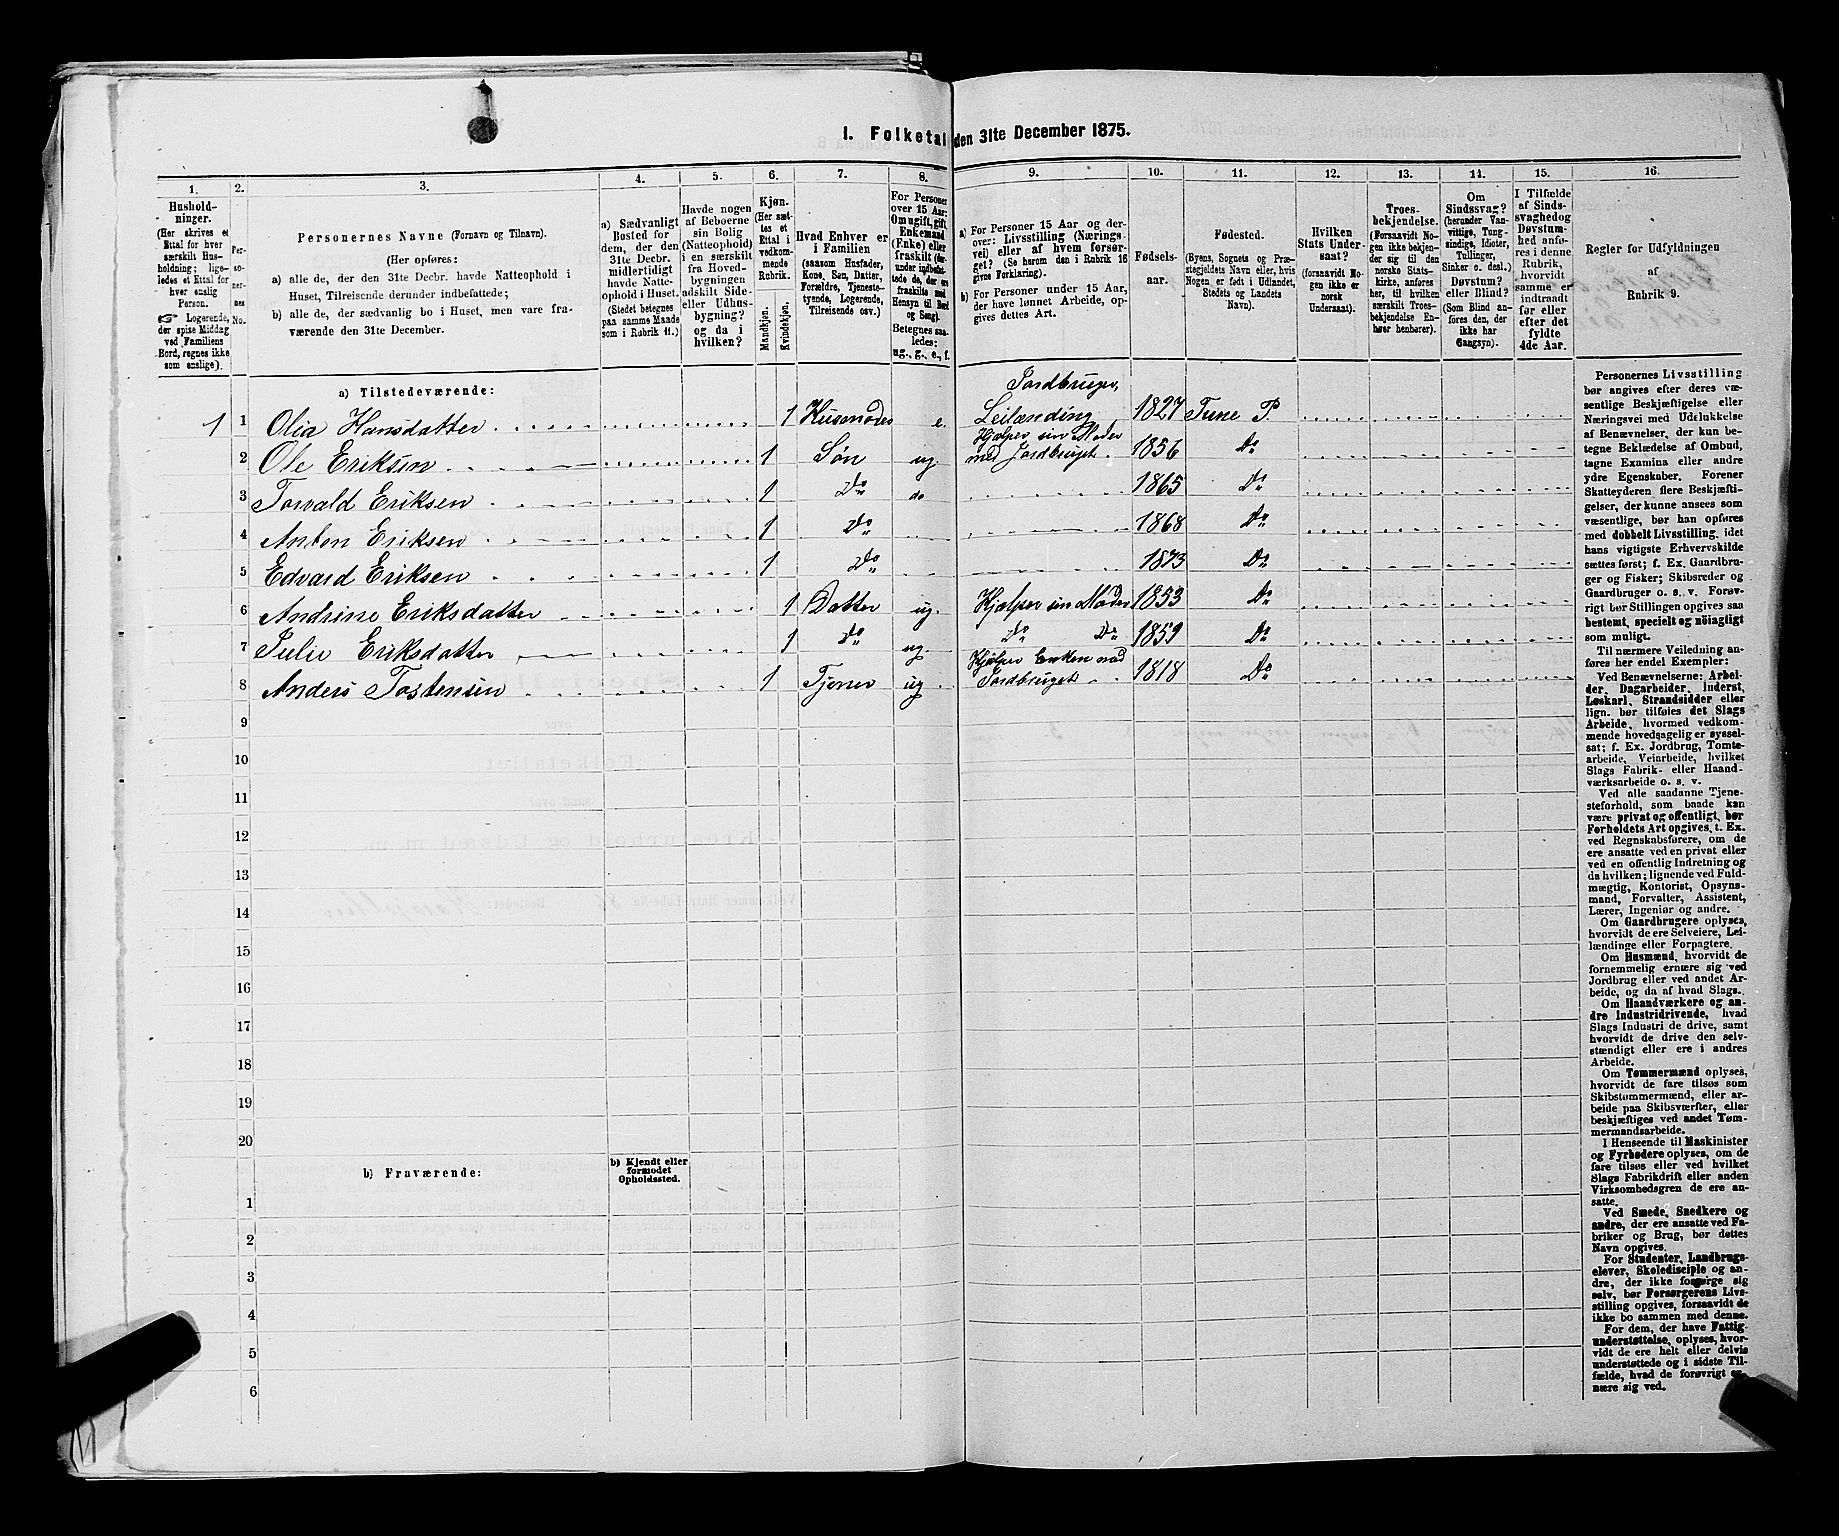 I. Folketal den 31te December 1875.
1.
2.
3.
4.
5.
6.
7.
8.
9.
10.
11.
12.
13.
14.
15.
16.
Hushold-
ninger.
(Her skrives et
Ettal for hver
særskilt Hus-
holdning; lige-
ledes et Ettal for
hver enslig
Person.
☞ Logerende,
der spise Middag
ved Familiens
Bord, regnes ikke
som enslige).
Per-
so-
ner-
nes
No.
Personernes Navne (Fornavn og Tilnavn).
(Her opføres:
a) alle de, der den 31te Decbr. havde Natteophold i
Huset, Tilreisende derunder indbefattede;
b) alle de, der sædvanlig bo i Huset, men vare fra-
værende den 31te December.
a) Sædvanligt
Bosted for
dem, der den
31te Decbr.
midlertidigt
havde Natte-
ophold i Huset.
(Stedet betegnes
paa samme Maade
som i Rubrik 11.)
Havde nogen
af Beboerne
sin Bolig
(Natteophold)
i en særskilt
fra Hoved-
bygningen
adskilt Side-
eller Udhus-
bygning?
og da i
hvilken?
Kjøn.
(Her sæt-
tes et
Ettal i
vedkom-
mende
Rubrik.
Mandkjøn.
Kvindekjøn.
Hvad Enhver er
i Familien
(saasom Husfader,
Kone, Søn, Datter,
Forældre, Tjeneste-
tydende, Logerende,
Tilreisende osv.)
For Personer
over 15 Aar:
Om ugift, gift,
Enkemand
(Enke) eller
fraskilt
Betegnes saa-
ledes:
ug., g., e., f.
a) For Personer 15 Aar og der-
over: Livsstilling (Nærings-
vei) eller af hvem forsør-
get? (Se herom den i Rubrik 16
givne Forklaring).
b) For Personer under 15 Aar,
der have lønnet Arbeide, op-
gives dettes Art.
Fødsels-
aar.
Fødested.
(Byens, Sognets og Præ-
stegjeldets Navn eller, hvis
Nogen er født i Udlandet,
Stedets og Landets
Navn).
Hvilken
Stats Under-
saat?
(forsaavidt No-
gen ikke er
norsk
Undersaat).
Troes-
bekjendelse.
(Forsaavidt No-
gen ikke bekjen-
der sig til den
norske Stats-
kirke, anføres
her, til hvilken
særskilt Troes-
bekjendelse En-
hver henhører).
Om
Sindssvag?
(herunder Van-
vittige, Tung-
sindige, Idioter,
Tullinger,
Sinker o. desl.)
Døvstum?
eller Blind?
(Som Blind an-
føres den, der
ikke har
Gangsyn).
I Tilfælde
af Sinds-
svaghed og
Døvstum-
hed anfø-
res i denne
Rubrik,
hvorvidt
samme er
indtraadt
før eller
efter det
fyldte
4de Aar.
Regler for Udfyldningen
af
Rubrik 9.
a) Tilstedeværende:
1 1 Olia Hansdatter 1 Husmoder e. Jordbruger, Leilænding 1827 Tune P.
2 Ole Eriksen 1 Søn ug. Hjælper sin Moder med Jordbruget. 1856 Do
3 Torvald Eriksen 1 Do do 1865 Do
4 Anton Eriksen 1 Do 1868 Do
5 Edvard Eriksen 1 Do 1873 Do
6 Andrine Eriksdatter 1 Datter ug. Hjælper sin Moder 1853 Do
7 Julie Eriksdatter 1 Do ug. Do Do 1859 Do
8 Anders Tostensen 1 Tjener ug Hjælper Enken med Jordbruget 1818 Do
9
10
11
12
13
14
15
16
17
18
19
20
b) Fraværende:
b) Kjendt eller
formodet
Opholdssted.
1
2
3
4
5
6
Personernes Livsstilling
bør angives efter deres væ-
sentlige Beskjæftigelse eller
Næringsvei med Udelukkelse
af Benævnelser, der kun be-
tegne Beklædelse af Ombud,
tagne Examina eller andre
ydre Egenskaber. Forener
Skatteyderen flere Beskjæfti-
gelser, der kunne ansees som
væsentlige, bør han opføres
med dobbelt Livsstilling, idet
hans vigtigste Erhvervskilde
sættes først; f. Ex. Gaardbru-
ger og Fisker; Skibsreder og
Gaardbruger o. s. v. Forøv-
rigt bør Stillingen opgives saa
bestemt, specielt og nøiagtigt
som muligt.
Til nærmere Veiledning an-
føres her endel Exempler:
Ved Benævnelserne: Arbei-
der, Dagarbeider, Inderst,
Løskarl, Strandsidder eller
lign. bør tilføies det Slags
Arbeide, hvormed vedkom-
mende hovedsagelig er syssel-
sat; f. Ex. Jordbrug, Tomte-
arbeide, Veiarbeide, hvilket
Slags Fabrik- eller Haand-
værksarbeide o. s. v.
Ved alle saadanne Tjene-
steforhold, som baade kan
være privat og offentligt, bør
Forholdets Art opgives, t. Ex.
ved Regnskabsførere, om de
ere ansatte ved en privat eller
ved en offentlig Indretning og
da hvilken; lignende ved Fuld-
mægtig, Kontorist, Opsyns-
mand, Forvalter, Assistent,
Lærer, Ingeniør og andre.
Om Gaardbrugere oplyses,
hvorvidt de ere Selveiere, Lei-
lændinge eller Forpagtere.
Om Husmænd, hvorvidt de
fornemmelig ernære sig ved
Jordbrug eller ved andet Ar-
beide, og da af hvad Slags.
Om Haandværkere og an-
dre Industridrivende, hvad
Slags Industri de drive, samt
hvorvidt de drive den selv-
stændigt eller ere i andres
Arbeide.
Om Tømmermænd oplyses,
hvorvidt de fare tilsøs som
Skibstømmermænd, eller ar-
beide paa Skibsværfter, eller
beskjæftiges ved andet Tøm-
mermandsarbeide.
I Henseende til Maskinister
og Fyrbødere oplyses, om de
fare tilsøs eller ved hvilket
Slags Fabrikdrift eller anden
Virksomhedsgren de ere an-
satte.
Ved Smede, Snedkere og
andre, der ere ansatte ved Fa-
briker og Brug, bør dettes
Navn opgives.
For Studenter, Landbrugs-
elever, Skoledisciple og an-
dre, der ikke forsørge sig
selv, bør Forsørgerens Livs-
stilling opgives, forsaavidt de
ikke bo sammen med denne.
For dem, der have Fattig-
understøttelse, oplyses, hvor-
vidt de ere helt eller delvis
understøttede og i sidste Til-
fælde, hvad de forøvrigt er-
nære sig ved.